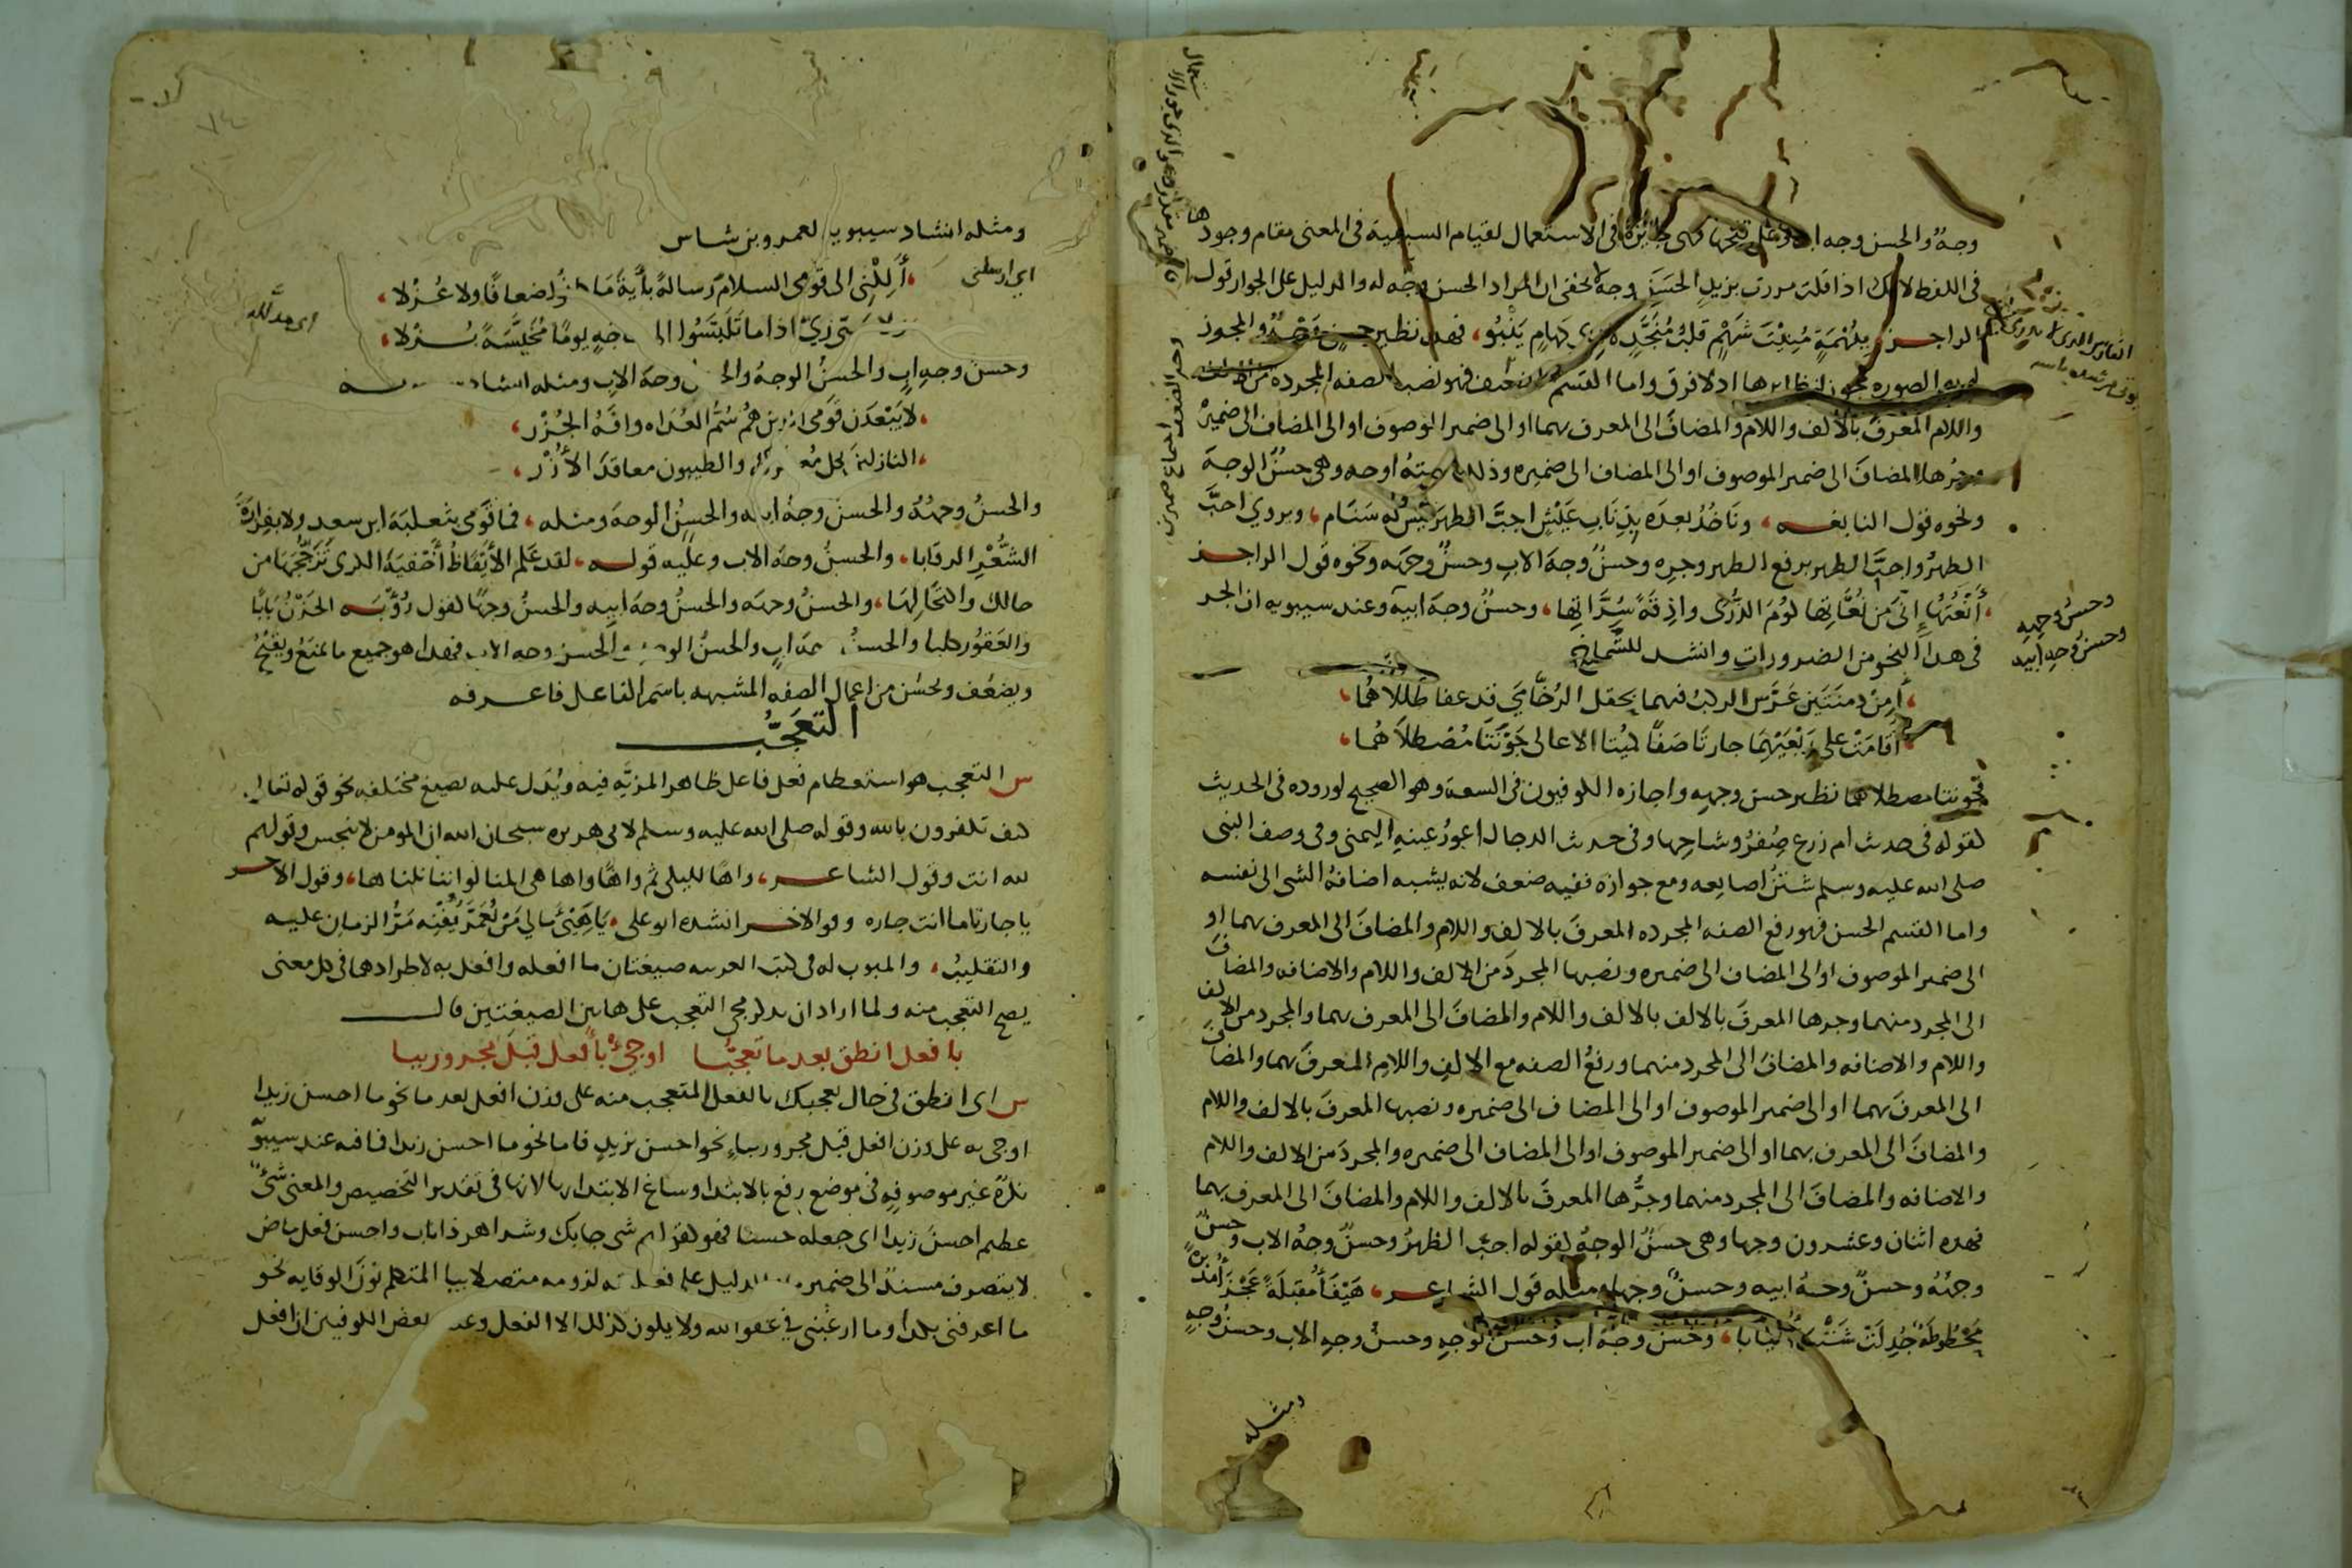 وجهٌ والحسن وجه اب وعلى قبحها فهى جائزة فى الاستعمال لقيام السببية فى المعنى مقام وجودها
فى اللفظ لانك اذا قلت مررت بزيد الحسن وجه لا يخفى ان المراد الحسن وجه له والدليل على الجواز قول
الراجز ببُهْمَةٍ مُنِيتَ شَهْمٍ قلبُ مُنَجَّذٍ لا ذى كَهامٍ يَنْبُو، فهذا نظير حسنٍ وجهٌ والمجوز
لهذه الصوره مجوز لنظايرها اذ لا فرق واما القسم الضعيف فهو نصب الصفه المجرده من الالف
واللام المعرفَ بالالف واللام والمضافَ الى المعرف بهما او الى ضمير الموصوف او الى المضاف الى ضميره
وجرها المضافَ الى ضمير الموصوف او الى المضاف الى ضميره وذلك ستة اوجه وهى حسنٌ الوجهَ
ونحوه قول النابغه، ونَاخُذُ بعدَه بِذِنَابِ عَيْشٍ اجبَّ الظهرَ ليس له سَنَام، ويروي اجبَّ
الظهرُ واجبَّ الظهرِ برفع الظهر وجره وحسنٌ وجهَ الابِ وحسنٌ وجهَه ونحوه قول الراجز
، أنْعَتُهَا إنّى من نُعَّاتِها كُومَ الذُّرَى وادِقَةً سُرَّاتِها، وحسنٌ وجهَ ابيه وعند سيبويه ان الجر
فى هذا النحو من الضرورات وانشد للشماخ
، أمِنْ دِمنَتَين عَرَّس الركبُ فيهما بحقل الرُخَامَى قد عفا طَللاهُما،
، أقامَتْ على رَبْعَيْهِمَا جارتا صَفًا كُمَيْتا الاعالى جَوْنَتَا مُصْطلاَهُما،
فجونتا مصطلاهما نظير حسن وجهه واجازه الكوفيون فى السعه وهو الصحيح لوروده فى الحديث
كقوله فى حديث ام زرع صِفْرُ وشاحِها وفى حديث الدجال اعورُ عينِهِ اليمنى وفى وصف النبى
صلى الله عليه وسلم شثنُ اصابعه ومع جوازه ففيه ضعف لانه يشبه اضافه الشى الى نفسه
واما القسم الحسن فهو رفع الصفه المجرده المعرفَ بالالف واللام والمضافَ الى المعرف بهما او
الى ضمير الموصوف او الى المضاف الى ضميره ونصبها المجردَ من الالف واللام والاضافه والمضافَ
الى المجرد منهما وجرها المعرفَ بالالف واللام والمضافَ الى المعرف بهما والمجرد من الالف
واللام والاضافه والمضافَ الى المجرد منهما ورفعُ الصفه مع الالفِ واللامِ المعرفَ بهما والمضافَ
الى المعرفَ بهما او الى ضمير الموصوف او الى المضاف الى ضميره ونصبها المعرفَ بالالف واللام
والمضافَ الى المعرف بهما او الى ضمير الموصوف او الى المضاف الى ضميره والمجردَ من الالف واللام
والاضافه والمضافَ الى المجرد منهما وجرُّها المعرفَ بالالف واللام والمضافَ الى المعرف بهما
فهذه اثنان وعشرون وجها وهى حسنٌ الوجهُ كقوله اجبّ الظهرُ وحسنٌ وجهُ الاب وحسنٌ
وجهُهُ وحسنٌ وجهُ ابيه وحسنٌ وجهًا ومثله قول الشاعر، هَيْفَاُ مُقبِلَةً عَجْزَاُ مُدْبِرَةً
مَحْطُوطَةٌ جُدِلَتْ شَنْبَاءُ انيابا، وحسنٌ وجهَ ابٍ وحسنُ الوجهِ وحسنُ وجهِ الاب وحسنُ وجهٍ
ومثله
وحسنُ وجهِهِ
وحسنُ وجهِ ابيه
ومثله انشاد سيبويه لعمرو بن شاس
، أَلِكْنِى الى قومى السلامَ رسالةً بأيةِ مَا كانوا ضعافًا ولا عُزْلا،
اى ارسلنى
ولا سيّئى زىٍّ اذا ما تَلَبَّسُوا الى حاجةٍ يومًا مُخَيَّسَةً بُزْلا،
وحسنُ وجهِ ابٍ والحسنُ الوجهُ والحسن وجهُ الابِ ومثله انشاد سيبويه
، لا يَبْعَدَنْ قَومى الذين هُمُ سُمُّ العُدَاه وافَهُ الجُزْرِ،
، النازلينَ بكل مُعتركٍ والطيبون معاقدَ الأُزْر،
والحسنُ وجهُهُ والحسن وجهُ ابيه والحسنُ الوجهَ ومثله، فما قَومى بثعلبَةَ ابن سعدٍ ولا بفزارَةَ
الشُّعْرِ الرقابا، والحسنُ وجهَ الاب وعليه قوله، لقد عَلِم الأيقاظُ أخْفِيَةَ الكرى تَزَجُّجَهَا من
حالكٍ واكتحالَها، والحسنُ وجهَه والحسنُ وجهَ ابيه والحسنُ وجهًا كقول رُؤْبَه الحَزْنُ بَابًا
والعَقورُ كلبا والحسنُ وجهَ ابٍ والحسنُ الوجهِ والحسن وجهِ الاب فهذا هو جميع ما يمتنعُ ويقبُحُ
ويضعُف ويحسُن من اعمال الصفه المشبهه باسم الفاعل فاعرفه
التعَجُّبُ
س التعجب هو استعظام فعل فاعل ظاهر المزيَّه فيه ويُدَل عليه بصيغ مختلفه نحو قوله تعالى
كيف تكفرون بالله وقوله صلى الله عليه وسلم لابى هريره سبحان الله ان المومن لا ينجس وقولهم
لله انت وقول الشاعر، واهًا لليلى ثم واهًا واها هى المنا لو اننا نلناها، وقول الاخر
يا جارتا ما انت جاره وقول الاخر انشده ابو على، يَا هَيْئَ مَالِي مَنْ يُعَمَّرْ يُفْنِه مَرُّ الزمان عليه
والتقليبُ، والمبوب له فى كتب العربيه صيغتان ما افعله وافعل به لاطرادهما فى كل معنى
يصح التعجب منه ولما اراد ان يذكر مجى التعجب على هاتين الصيغتين قال
بافعل انطق بعد ما تعجُّبا او جئ بأفعل قبل مجرور ببا
س اى انطق فى حال تعجبك بالفعل المتعجب منه على وزن افعل بعد ما نحو ما احسن زيدا
او جى به على وزن افعل قبل مجرور بباءٍ نحو احسن بزيدٍ فاما نحو ما احسن زيدا فما فيه عند سيبويه
نكرة غير موصوفه فى موضع رفع بالابتدا وساغ الابتدا بها لانها فى تقدير التخصيص والمعنى شئٌ
عظيم احسنَ زيدا اى جعله حسنا فهو كقولهم شى جا بك وشر اهر ذا ناب واحسن فعل ماض
لا يتصرف مسندٌ الى ضمير ما والدليل على فعليته لزومه متصلا بيا المتكلم نونَ الوقايه نحو
ما اعرفنى بكذا وما ارغبنى فى عفو الله ولا يكون كذلك الا الفعل وعند بعض الكوفيين ان افعل